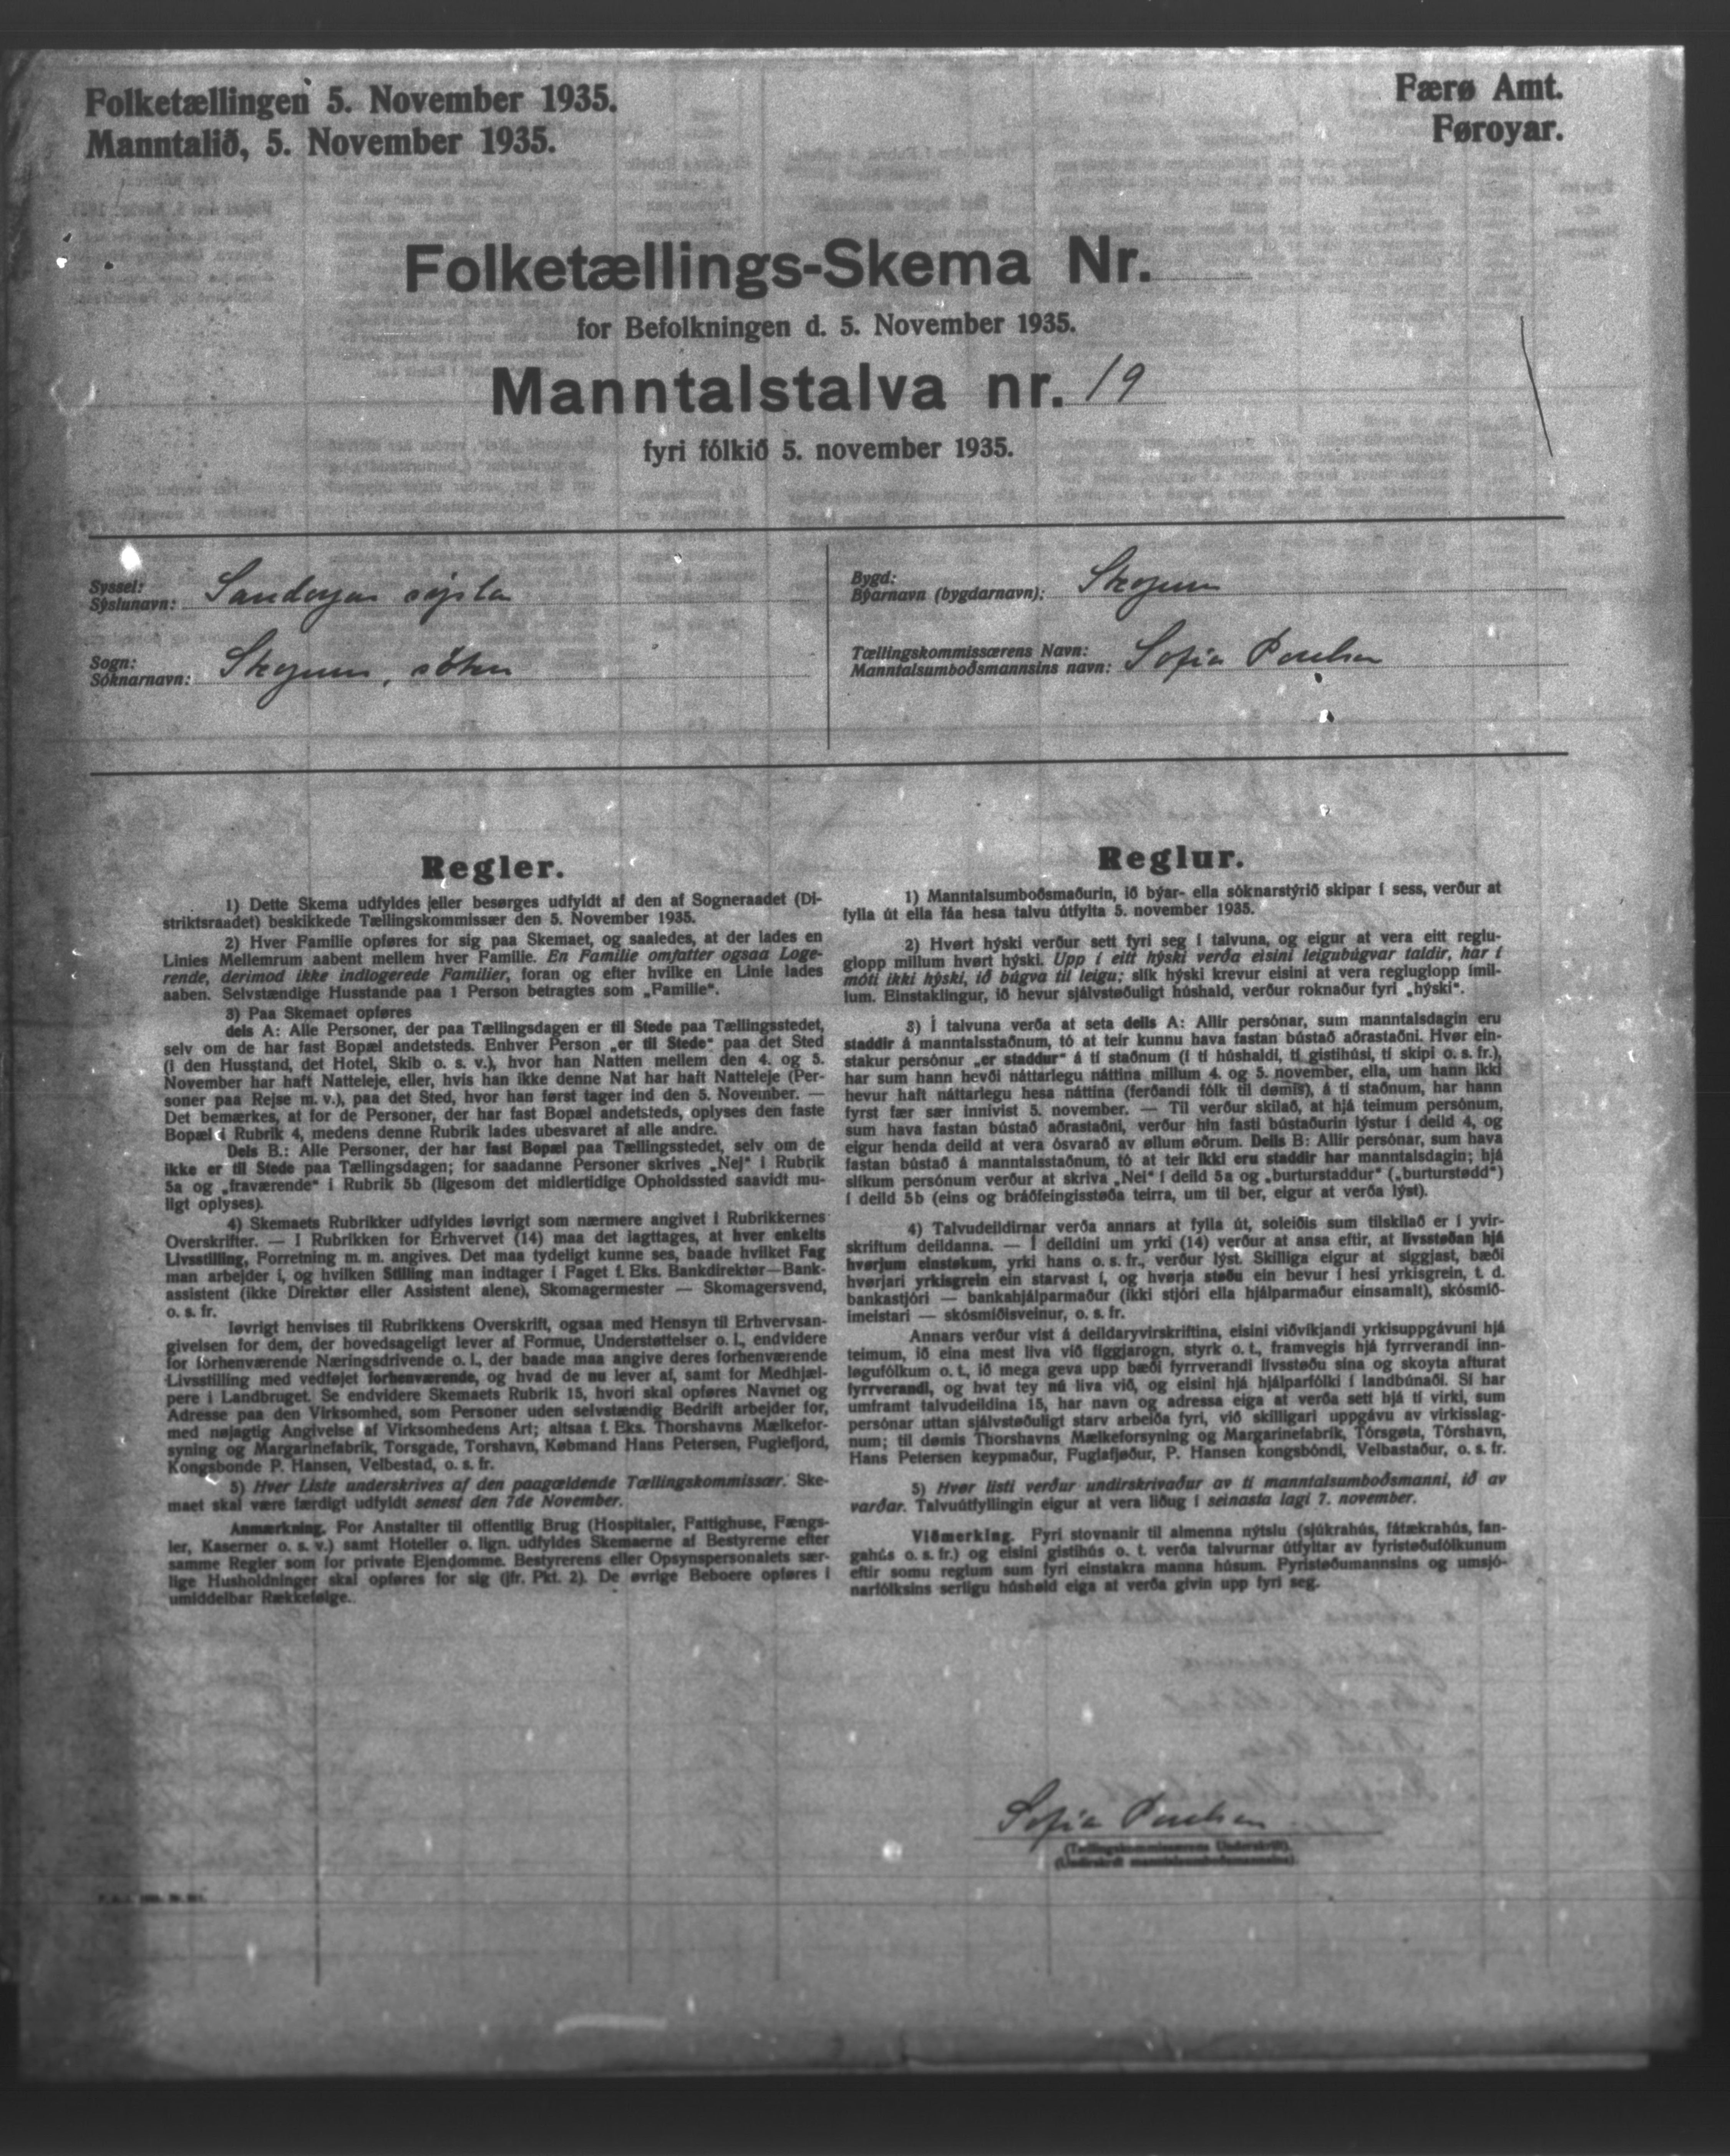 Folketællingen 5. November 1935.
Manntalið, 5. November 1935.
Færø Amt.
Føroyar.
Folketællings-Skema Nr.
for Befolkningen d. 5. November 1935.
Manntalstalva nr. 19
fyri fólkið 5. november 1935.
Syssel:
Sýslunavn: Sandoyar sýsla
Sogn:
Sóknarnavn: Skopun, sókn
Bygd:
Býarnavn (bygdarnavn): Skopun
Tællingskommissærens Navn:
Manntalsumboðsmannsins navn: Sofia Poulsen
Regler.
1) Dette Skema udfyldes eller besørges udfyldt af den af Sogneraadet (Di-
striktsraadet) beskikkede Tællingskommissær den 5. November 1935.
2) Hver Familie opføres for sig paa Skemaet, og saaledes, at der lades en
Linies Mellemrum aabent mellem hver Familie. En Familie omfatter ogsaa Loge-
rende, derimod ikke indlogerede Familier, foran og efter hvilke en Linie lades
aaben. Selvstændige Husstande paa 1 Person betragtes som „Familie“.
3) Paa Skemaet opføres
dels A: Alle Personer, der paa Tællingsdagen er til Stede paa Tællingsstedet,
selv om de har fast Bopæl andetsteds. Enhver Person „er til Stede“ paa det Sted
(i den Husstand, det Hotel, Skib o. s. v.), hvor han Natten mellem den 4. og 5.
November har haft Natteleje, eller, hvis han ikke denne Nat har haft Natteleje (Per-
soner paa Rejse m. v.), paa det Sted, hvor han først tager ind den 5. November. —
Det bemærkes, at for de Personer, der har fast Bopæl andetsteds, oplyses den faste
Bopæl i Rubrik 4, medens denne Rubrik lades ubesvaret af alle andre.
Dels B.: Alle Personer, der har fast Bopæl paa Tællingsstedet, selv om de
ikke er til Stede paa Tællingsdagen; for saadanne Personer skrives „Nej“ i Rubrik
5a og „fraværende“ i Rubrik 5b (ligesom det midlertidige Opholdssted saavidt mu-
ligt oplyses).
4) Skemaets Rubrikker udfyldes iøvrigt som nærmere angivet i Rubrikkernes
Overskrifter. — I Rubrikken for Erhvervet (14) maa det iagttages, at hver enkelts
Livsstilling, Forretning m. m. angives. Det maa tydeligt kunne ses, baade hvilket Fag
man arbejder i, og hvilken Stilling man indtager i Faget f. Eks. Bankdirektør—Bank-
assistent (ikke Direktør eller Assistent alene), Skomagermester — Skomagersvend,
o. s. fr.
Iøvrigt henvises til Rubrikkens Overskrift, ogsaa med Hensyn til Erhvervsan-
givelsen for dem, der hovedsageligt lever af Formue, Understøttelser o. l., endvidere
for forhenværende Næringsdrivende o. l., der baade maa angive deres forhenværende
Livsstilling med vedføjet forhenværende, og hvad de nu lever af, samt for Medhjæl-
pere i Landbruget. Se endvidere Skemaets Rubrik 15, hvori skal opføres Navnet og
Adresse paa den Virksomhed, som Personer uden selvstændig Bedrift arbejder for,
med nøjagtig Angivelse af Virksomhedens Art; altsaa f. Eks. Thorshavns Mælkefor-
syning og Margarinefabrik, Torsgade, Torshavn, Købmand Hans Petersen, Fuglefjord,
Kongsbonde P. Hansen, Velbestad, o. s. fr.
5) Hver Liste underskrives af den paagældende Tællingskommissær. Ske-
maet skal være færdigt udfyldt senest den 7de November.
Anmærkning. For Anstalter til offentlig Brug (Hospitaler, Fattighuse, Fængs-
ler, Kaserner o. s. v.) samt Hoteller o. lign. udfyldes Skemaerne af Bestyrerne efter
samme Regler som for private Ejendomme. Bestyrerens eller Opsynspersonalets sær-
lige Husholdninger skal opføres for sig (jfr. Pkt. 2). De øvrige Beboere opføres i
umiddelbar Rækkefølge.
Reglur.
1) Manntalsumboðsmaðurin, ið býar- ella sóknarstýrið skipar í sess, verður at
fylla út ella fáa hesa talvu útfylta 5. november 1935.
2) Hvørt hýski verður sett fyri seg í talvuna, og eigur at vera eitt reglu-
glopp millum hvørt hýski. Upp í eitt hýski verða eisini leigubúgvar taldir, har í
móti ikki hýski, ið búgva til leigu; slík hýski krevur eisini at vera regluglopp ímil-
lum. Einstaklingur, ið hevur sjálvstøðuligt húshald, verður roknaður fyri „hýski“.
3) Í talvuna verða at seta dells A: Allir persónar, sum manntalsdagin eru
staddir á manntalsstaðnum, tó at teir kunnu hava fastan bústað aðrastaðni. Hvør ein-
stakur persónur „er staddur“ á tí staðnum (í tí húshaldi, tí gistihúsi, tí skipi o. s. fr.),
har sum hann hevði náttarlegu náttina millum 4. og 5. november, ella, um hann ikki
hevur haft náttarlegu hesa náttina (ferðandi fólk til dømis), á tí staðnum, har hann
fyrst fær sær innivist 5. november. — Til verður skilað, at hjá teimum persónum,
sum hava fastan bústað aðrastaðni, verður hin fasti bústaðurin lýstur í deild 4, og
eigur henda deild at vera ósvarað av øllum øðrum. Dells B: Allir persónar, sum hava
fastan bústað á manntalsstaðnum, tó at teir ikki eru staddir har manntalsdagin; hjá
slíkum persónum verður at skriva „Nei“ í deild 5a og „burturstaddur“ („burturstødd“)
í deild 5b (eins og bráðfeingisstøða teirra, um til ber, eigur at verða lýst).
4) Talvudeildirnar verða annars at fylla út, soleiðis sum tilskilað er í yvir-
skriftum deildanna. — Í deildini um yrki (14) verður at ansa eftir, at livsstøðan hjá
hvørjum einstøkum, yrki hans o. s. fr., verður lýst. Skilliga eigur at siggjast, bæði
hvørjari yrkisgrein ein starvast í, og hvørja støðu ein hevur í hesi yrkisgrein, t. d.
bankastjóri — bankahjálparmaður (ikki stjóri ella hjálparmaður einsamalt), skósmið-
imeistari — skósmiðisveinur, o. s. fr.
Annars verður vist á deildaryvirskriftina, eisini viðvíkjandi yrkisuppgávuni hjá
teimum, ið eina mest liva við fíggjarogn, styrk o. t., framvegis hjá fyrrverandi inn-
løgufólkum o. t., ið mega geva upp bæði fyrrverandi livsstøðu sína og skoyta afturat
fyrrverandi, og hvat tey nú liva við, og eisini hjá hjálparfólki í landbúnaði. Sí har
umframt talvudeildina 15, har navn og adressa eiga at verða sett hjá tí virki, sum
persónar uttan sjálvstøðuligt starv arbeiða fyri, við skilligari uppgávu av virkisslag-
num; til dømis Thorshavns Mælkeforsyning og Margarinefabrik, Tórsgøta, Tórshavn,
Hans Petersen keypmaður, Fuglafjøður, P. Hansen kongsbóndi, Velbastaður, o. s. fr.
5) Hvør listi verður undirskrivaður av tí manntalsumboðsmanni, ið av
varðar. Talvuútfyllingin eigur at vera liðug í seinasta lagi 7. november.
Viðmerking. Fyri stovnanir til almenna nýtslu (sjúkrahús, fátækrahús, fan-
gahús o. s. fr.) og eisini gistihús o. t. verða talvurnar útfyltar av fyristøðufólkunum
eftir somu reglum sum fyri einstakra manna húsum. Fyristøðumannsins og umsjó-
narfólksins serligu húshøld eiga at verða givin upp fyri seg.
Sofia Poulsen
(Tællingskommissærens Underskrift).
(Undirskrift manntalsumboðsmannsins)